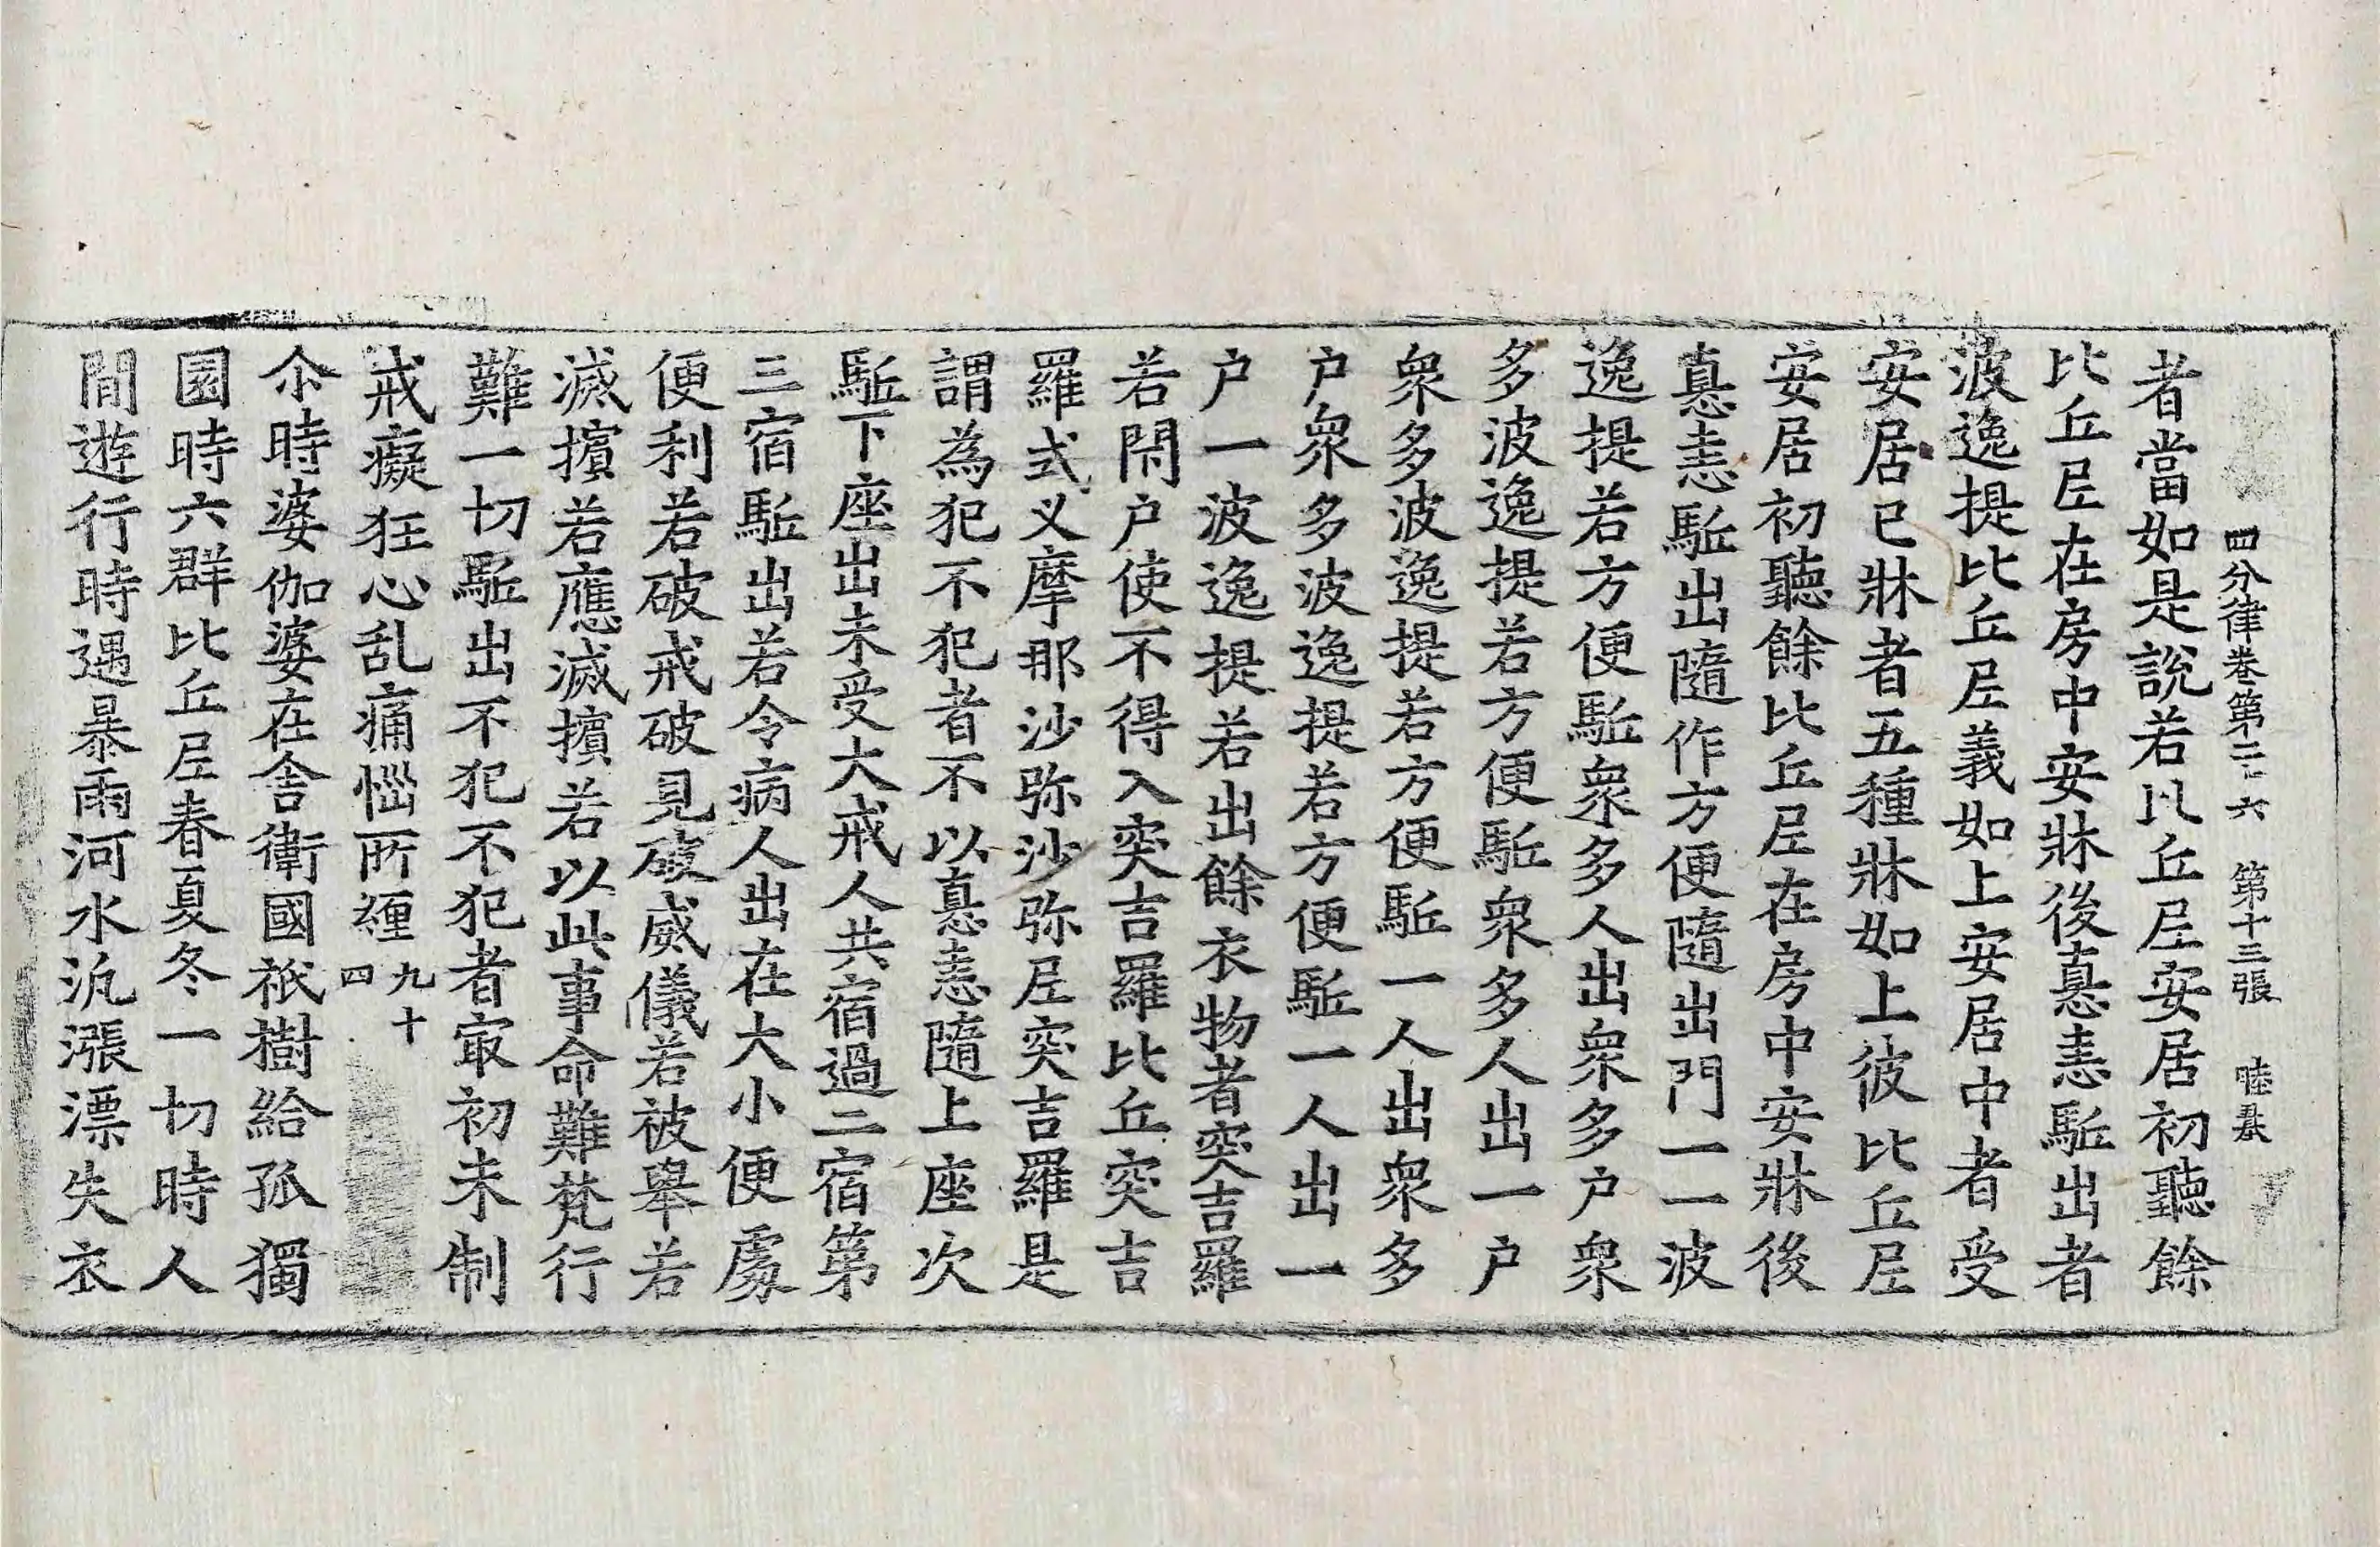 四分律卷第二十六 第十三張 睦
者當如是說若比丘尼安居初聽餘
比丘尼在房中安牀後恚驅出者
波逸提比丘尼義如上安居中者受
安居已牀者五種牀如上彼比丘尼
安居初聽餘比丘尼在房中安牀後
恚驅出隨作方便隨出門一一波
逸提若方便驅眾多人出眾多户眾
多波逸提若方便驅眾多人出一户
眾多波逸提若方便驅一人出眾多
户眾多波逸提若方便驅一人出一
户一波逸提若出餘衣物者突吉羅
若閉户使不得入突吉羅比丘突吉
羅式叉摩那沙弥沙弥尼突吉羅是
謂為犯不犯者不以恚隨上座次
駈下座出未受大戒人共宿過二宿第
三宿駈出若令病人出在大小便處
便利若破戒破見破威儀若被舉若
滅擯若應滅擯若以此事命難梵行
難一切駈出不犯不犯者冣初未制
戒癡狂心乱痛惱所纏九十四
尒時婆伽婆在舍衛國祇樹給孤獨
園時六群比丘尼春夏冬一切時人
間遊行時遇暴雨河水汎漲漂失衣